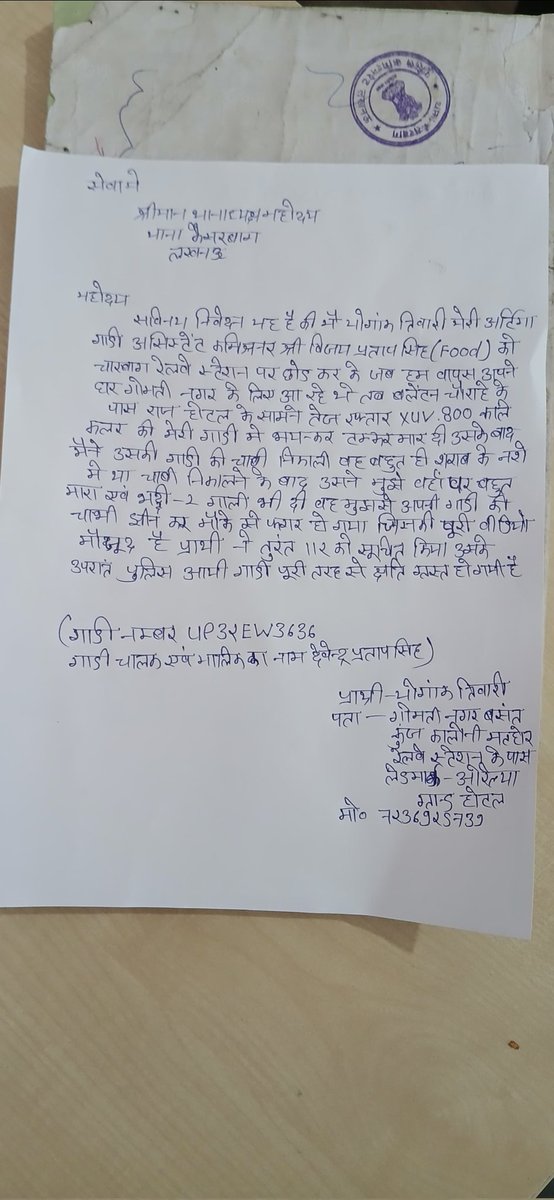 सेवामे
श्रीमान थानाध्यक्ष महोदय
थाना कैसरबाग
लखनऊ
महोदय
सविनय निवेदन यह है की मै योगांक त्रिवारी मेरी अर्टिगा
गाडी असिस्टेंट कमिश्नर श्री विजय प्रताप सिंह (Food) को
चारबाग रेलवे स्टेशन पर छोड कर के जब हम वापस अपने
घर गोमती नगर के लिए आ रहे थे तब बलेंटन चौराहे के
पास राज होटल के सामने तेज रफ्तार XUV.800 काले
कलर की मेरी गाडी मे भयन्कर टक्कर मार दी उसके बाद
मैने उसकी गाडी की चाबी निकाली वह बहुत ही शराब के नशे
मे था चाबी निकालने के बाद उसने मुझे वहाँ पर बहुत
मारा एवं भद्दी-2 गाली भी दी वह मुझसे अपनी गाडी की
चाभी छीन कर मौके से फरार हो गया जिसकी पूरी वीडियो
मौजूद है प्रार्थी ने तुरंत 112 को सूचित किया उसके
उपरांत पुलिस आयी गाडी पूरी तरह से क्षति ग्रस्त हो गयी है
(गाडी नम्बर UP32EW3636
गाडी चालक एवं मालिक का नाम देवेन्द्र प्रताप सिंह)
प्रार्थी - योगांक त्रिवारी
पता - गोमती नगर बसंत
कुंज कालोनी मल्हौर
रेलवे स्टेशन के पास
लेडमार्क - ओरिल्या
ग्रान्ड होटल
मो० 7236925739